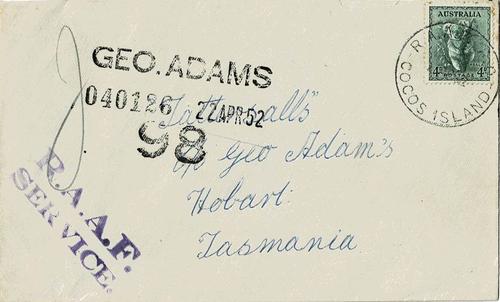 AUSTRALIA
4D 4D
COCOS ISLAND
GEO. ADAMS
040126 22 APR 52
98
"Tattersalls"
c/o Geo Adam's
Hobart
Tasmania
R.A.A.F.
SERVICE.